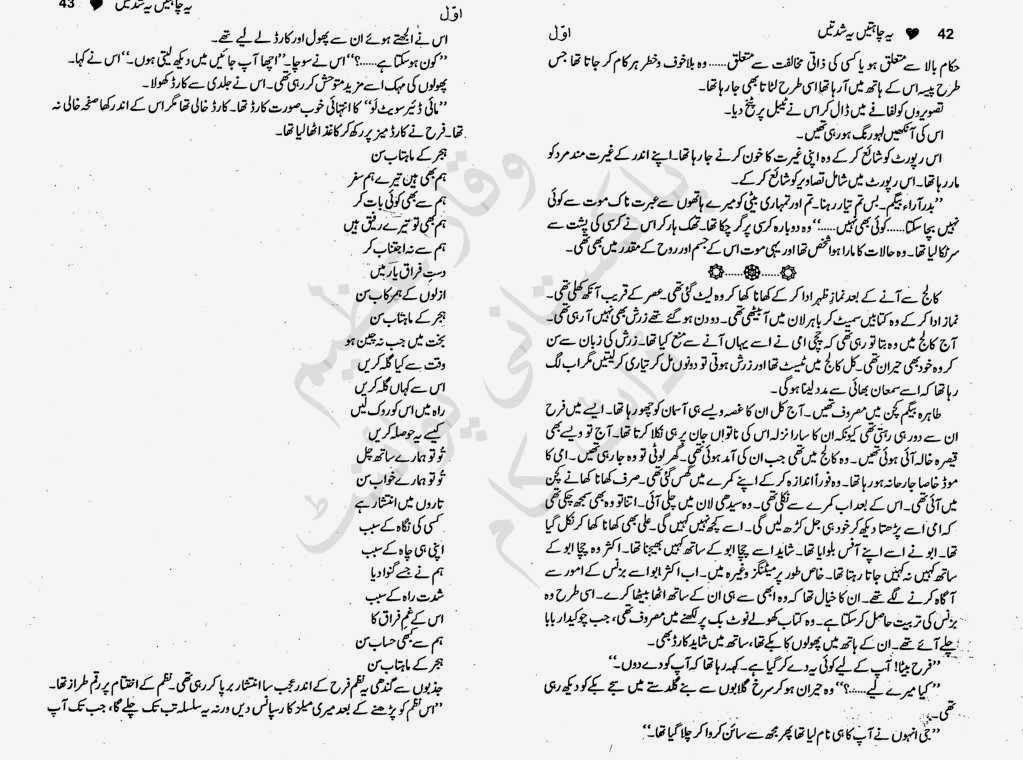 42 یہ چاہتیں یہ شدتیں اوّل
حکام بالا سے متعلق ہو یا کسی کی ذاتی مخالفت سے متعلق...... وہ بلا خوف و خطر ہر کام کر جاتا تھا جس
طرح پیسہ اس کے ہاتھ میں آ رہا تھا اسی طرح لٹاتا بھی جا رہا تھا۔
تصویروں کو لفافے میں ڈال کر اس نے ٹیبل پر پٹخ دیا۔
اس کی آنکھیں لہو رنگ ہو رہی تھیں۔
اس رپورٹ کو شائع کر کے وہ اپنی غیرت کا خون کرنے جا رہا تھا۔ اپنے اندر کے غیرت مند مرد کو
مار رہا تھا۔ اس رپورٹ میں شامل تصاویر کو شائع کر کے۔
’’بدر آراء بیگم۔ بس تم تیار رہنا۔ تم اور تمہاری بیٹی کو میرے ہاتھوں سے عبرت ناک موت سے کوئی
نہیں بچا سکتا...... کوئی بھی نہیں......‘‘ وہ دوبارہ کرسی پر گر چکا تھا۔ تھک ہار کر اس نے کرسی کی پشت سے
سر ٹکا لیا تھا۔ وہ حالات کا مارا ہوا شخص تھا اور یہی موت اس کے جسم اور روح کے مقدر میں بھی تھی۔
کالج سے آنے کے بعد نماز ظہر ادا کر کے کھانا کھا کر وہ لیٹ گئی تھی۔ عصر کے قریب آنکھ کھلی تھی۔
نماز ادا کر کے وہ کتابیں سمیٹ کر باہر لان میں آ بیٹھی تھی۔ دو دن ہو گئے تھے زرش بھی نہیں آ رہی تھی۔
آج کالج میں وہ بتا تو رہی تھی کہ چچی امی نے اسے یہاں آنے سے منع کیا تھا۔ زرش کی زبان سے سن
کر وہ خود بھی حیران تھی۔ کل کالج میں ٹیسٹ تھا اور زرش ہوتی تو دونوں مل کر تیاری کر لیتیں مگر اب لگ
رہا تھا کہ اسے سمعان بھائی سے مدد لینا ہو گی۔
طاہرہ بیگم کچن میں مصروف تھیں۔ آج کل ان کا غصہ ویسے ہی آسمان کو چھو رہا تھا۔ ایسے میں فرح
ان سے دور ہی رہتی تھی کیونکہ ان کا سارا نزلہ اس کی ناتواں جان پر ہی نکلا کرتا تھا۔ آج تو ویسے بھی
قیصرہ خالہ آئی ہوئی تھیں۔ وہ کالج میں تھی جب ان کی آمد ہوئی تھی۔ گھر لوٹی تو وہ جا رہی تھیں۔ امی کا
موڈ خاصا جارحانہ ہو رہا تھا۔ وہ فوراً اندازہ کر کے اپنے کمرے میں گھس گئی تھی۔ صرف کھانا کھانے کچن
میں آئی تھی۔ اس کے بعد اب کمرے سے نکلی تھی۔ وہ سیدھی لان میں چلی آئی۔ اتنا تو وہ بھی سمجھ چکی تھی
کہ امی اسے پڑھتا دیکھ کر خود ہی جل کڑھ لیں گی۔ اسے کچھ نہیں کہیں گی۔ علی بھی کھانا کھا کر نکل گیا
تھا۔ ابو نے اسے اپنے آفس بلوایا تھا۔ شاید اسے چچا ابو کے ساتھ کہیں بھیجنا تھا۔ اکثر وہ چچا ابو کے
ساتھ کہیں نہ کہیں جاتا رہتا تھا۔ خاص طور پر میٹنگز وغیرہ میں۔ اب اکثر ابو اسے بزنس کے امور سے
آگاہ کرنے لگے تھے۔ ان کا خیال تھا کہ وہ ابھی سے ہی ان کے ساتھ اٹھا بیٹھا کرے۔ اسی طرح وہ
بزنس کی تربیت حاصل کر سکتا ہے۔ وہ کتاب کھولے نوٹ بک پر لکھنے میں مصروف تھی، جب چوکیدار بابا
چلے آئے تھے۔ ان کے ہاتھ میں پھولوں کا بکے تھا، ساتھ میں شاید کارڈ بھی۔
’’فرح بیٹا! آپ کے لیے کوئی یہ دے کر گیا ہے۔ کہہ رہا تھا کہ آپ کو دے دوں۔‘‘
’’کیا میرے لیے......؟‘‘ وہ حیران ہو کر سرخ گلابوں سے بنے گلدستے میں سجے بکے کو دیکھ رہی
تھی۔
’’جی انہوں نے آپ کا ہی نام لیا تھا پھر مجھ سے سائن کروا کر چلا گیا تھا۔‘‘
43 یہ چاہتیں یہ شدتیں اوّل
اس نے الجھتے ہوئے ان سے پھول اور کارڈ لے لیے تھے۔
’’کون ہو سکتا ہے......؟‘‘ اس نے سوچا۔ ’’اچھا آپ جائیں میں دیکھ لیتی ہوں۔‘‘ اس نے کہا۔
پھولوں کی مہک اسے مزید متوحش کر رہی تھی۔ اس نے جلدی سے کارڈ کھولا۔
’’مائی ڈئیر سویٹ لَو‘‘ کا انتہائی خوب صورت کارڈ تھا۔ کارڈ خالی تھا مگر اس کے اندر رکھا صفحہ خالی نہ
تھا۔ فرح نے کارڈ میز پر رکھ کر کاغذ اٹھا لیا تھا۔
ہجر کے ماہتاب سن
ہم بھی ہیں تیرے ہم سفر
ہم سے بھی کوئی بات کر
ہم بھی تو تیرے رفیق ہیں
ہم سے نہ اجتناب کر
دستِ فراقِ یار میں
ازلوں کے ہمرکاب سن
ہجر کے ماہتاب سن
بخت میں جب نہ چین ہو
وقت سے کیا گلہ کریں
اس سے کہاں گلہ کریں
راہ میں اس کو روک لیں
کیسے یہ حوصلہ کریں
تُو تو ہمارے ساتھ چل
تُو تو ہمارے خواب سن
تاروں میں انتشار ہے
کسی کی نگاہ کے سبب
اپنی ہی چاہ کے سبب
ہم نے جسے گنوا دیا
شدت راہ کے سبب
اس کے غمِ فراق کا
ہم سے کبھی حساب سن
ہجر کے ماہتاب سن
جذبوں سے گندھی یہ نظم فرح کے اندر عجب سا انتشار برپا کر رہی تھی۔ نظم کے اختتام پر رقم طراز تھا۔
’’اس نظم کو پڑھنے کے بعد میری میلز کا رسپانس دیں ورنہ یہ سلسلہ تب تک چلے گا، جب تک آپ
وقار عظیم
پاکستانی پوائنٹ
ڈاٹ کام